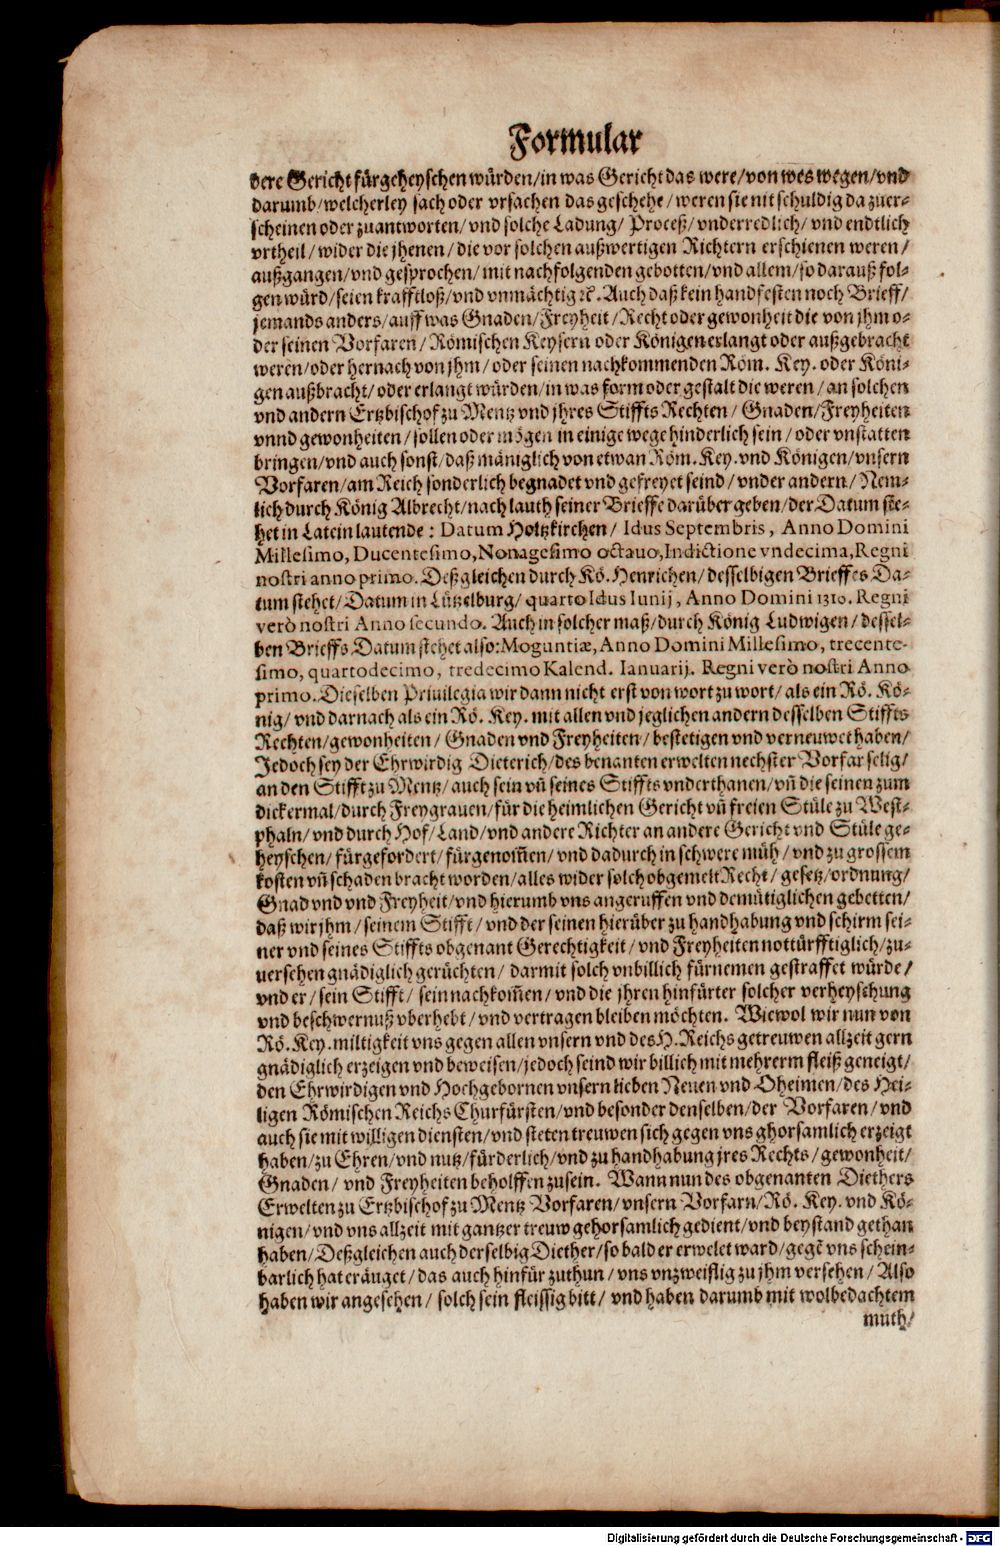 Formular
dere Gericht fürgeheyschen würden/in was Gericht das were/von wes wegen/vnd
darumb/welcherley sach oder vrsachen das geschehe/weren sie nit schuldig da zuer-
scheinen oder zuantworten/vnd solche Ladung/ Proceß/vnderredlich/vnd endtlich
vrtheil/wider die jhenen/die vor solchen außwertigen Richtern erschienen weren/
außgangen/vnd gesprochen/mit nachfolgenden gebotten/vnd allem/so darauß fol-
gen würd/seien krafftloß/vnd vnmächtig ꝛc. Auch daß kein handfesten noch Brieff/
jemands anders/auff was Gnaden/Freyheit/Recht oder gewonheit die von jhm o-
der seinen Vorfaren/Römischen Keysern oder Königen erlangt oder außgebracht
weren/oder hernach von jhm/oder seinen nachkommenden Röm. Key. oder Köni-
gen außbracht/oder erlangt würden/in was form oder gestalt die weren/an solchen
vnd andern Ertzbischof zu Mentz vnd jhres Stiffts Rechten/ Gnaden/Freyheiten
vnnd gewonheiten/sollen oder mögen in einige wege hinderlich sein/oder vnstatten
bringen/vnd auch sonst/daß mäniglich von etwan Röm. Key. vnd Königen/vnsern
Vorfaren/am Reich sonderlich begnadet vnd gefreyet seind/vnder andern/Nem-
lich durch König Albrecht/nach lauth seiner Brieffe darüber geben/der Datum ste-
het in Latein lautende: Datum Holtzkirchen/ Idus Septembris, Anno Domini
Millesimo, Ducentesimo, Nonagesimo octauo, Indictione vndecima, Regni
nostri anno primo. Deßgleichen durch Kö. Henrichen/desselbigen Brieffes Da-
tum stehet/Datum in Lützelburg/ quarto Idus Iunij, Anno Domini 1310. Regni
verò nostri Anno secundo. Auch in solcher maß/durch König Ludwigen/dessel-
ben Brieffs Datum stehet also: Moguntiæ, Anno Domini Millesimo, trecente-
simo, quartodecimo, tredecimo Kalend. Ianuarij. Regni verò nostri Anno
primo. Dieselben Priuilegia wir dann nicht erst von wort zu wort/als ein Rö. Kö-
nig/vnd darnach als ein Rö. Key. mit allen vnd jeglichen andern desselben Stiffts
Rechten/gewonheiten/ Gnaden vnd Freyheiten/bestetigen vnd verneuwet haben/
Jedoch sey der Ehrwirdig Dieterich/des benanten erwelten nechster Vorfar selig/
an den Stifft zu Mentz/auch sein vñ seines Stiffts vnderthanen/vñ die seinen zum
dickermal/durch Freygrauen/für die heimlichen Gericht vñ freien Stüle zu West-
phaln/vnd durch Hof/Land/vnd andere Richter an andere Gericht vnd Stüle ge-
heyschen/fürgefordert/fürgenom̃en/vnd dadurch in schwere müh/vnd zu grossem
kosten vñ schaden bracht worden/alles wider solch obgemelt Recht/gesetz/ordnung/
Gnad vnd vnd Freyheit/vnd hierumb vns angeruffen vnd demütiglichen gebetten/
daß wir jhm/seinem Stifft/vnd der seinen hierüber zu handhabung vnd schirm sei-
ner vnd seines Stiffts obgenant Gerechtigkeit/vnd Freyheiten nottürfftiglich/zu-
uersehen gnädiglich gerüchten/ darmit solch vnbillich fürnemen gestraffet würde/
vnd er/sein Stifft/ sein nachkom̃en/vnd die jhren hinfürter solcher verheyschung
vnd beschwernuß vberhebt/vnd vertragen bleiben möchten. Wiewol wir nun von
Rö. Key. miltigkeit vns gegen allen vnsern vnd des H. Reichs getreuwen allzeit gern
gnädiglich erzeigen vnd beweisen/jedoch seind wir billich mit mehrerm fleiß geneigt/
den Ehrwirdigen vnd Hochgebornen vnsern lieben Neuen vnd Oheimen/des Hei-
ligen Römischen Reichs Churfürsten/vnd besonder denselben/der Vorfaren/vnd
auch sie mit willigen diensten/vnd steten treuwen sich gegen vns ghorsamlich erzeigt
haben/zu Ehren/vnd nutz/fürderlich/vnd zu handhabung jres Rechts/gewonheit/
Gnaden/ vnd Freyheiten beholffen zusein. Wann nun des obgenanten Diethers
Erwelten zu Ertzbischof zu Mentz Vorfaren/vnsern Vorfarn/Rö. Key. vnd Kö-
nigen/vnd vns allzeit mit gantzer treuw gehorsamlich gedient/vnd beystand gethan
haben/Deßgleichen auch derselbig Diether/so bald er erwelet ward/gegẽ vns schein-
barlich hat eräuget/das auch hinfür zuthun/vns vnzweiflig zu jhm versehen/Also
haben wir angesehen/ solch sein fleissig bitt/ vnd haben darumb mit wolbedachtem
muth/
Digitalisierung gefördert durch die Deutsche Forschungsgemeinschaft - DFG